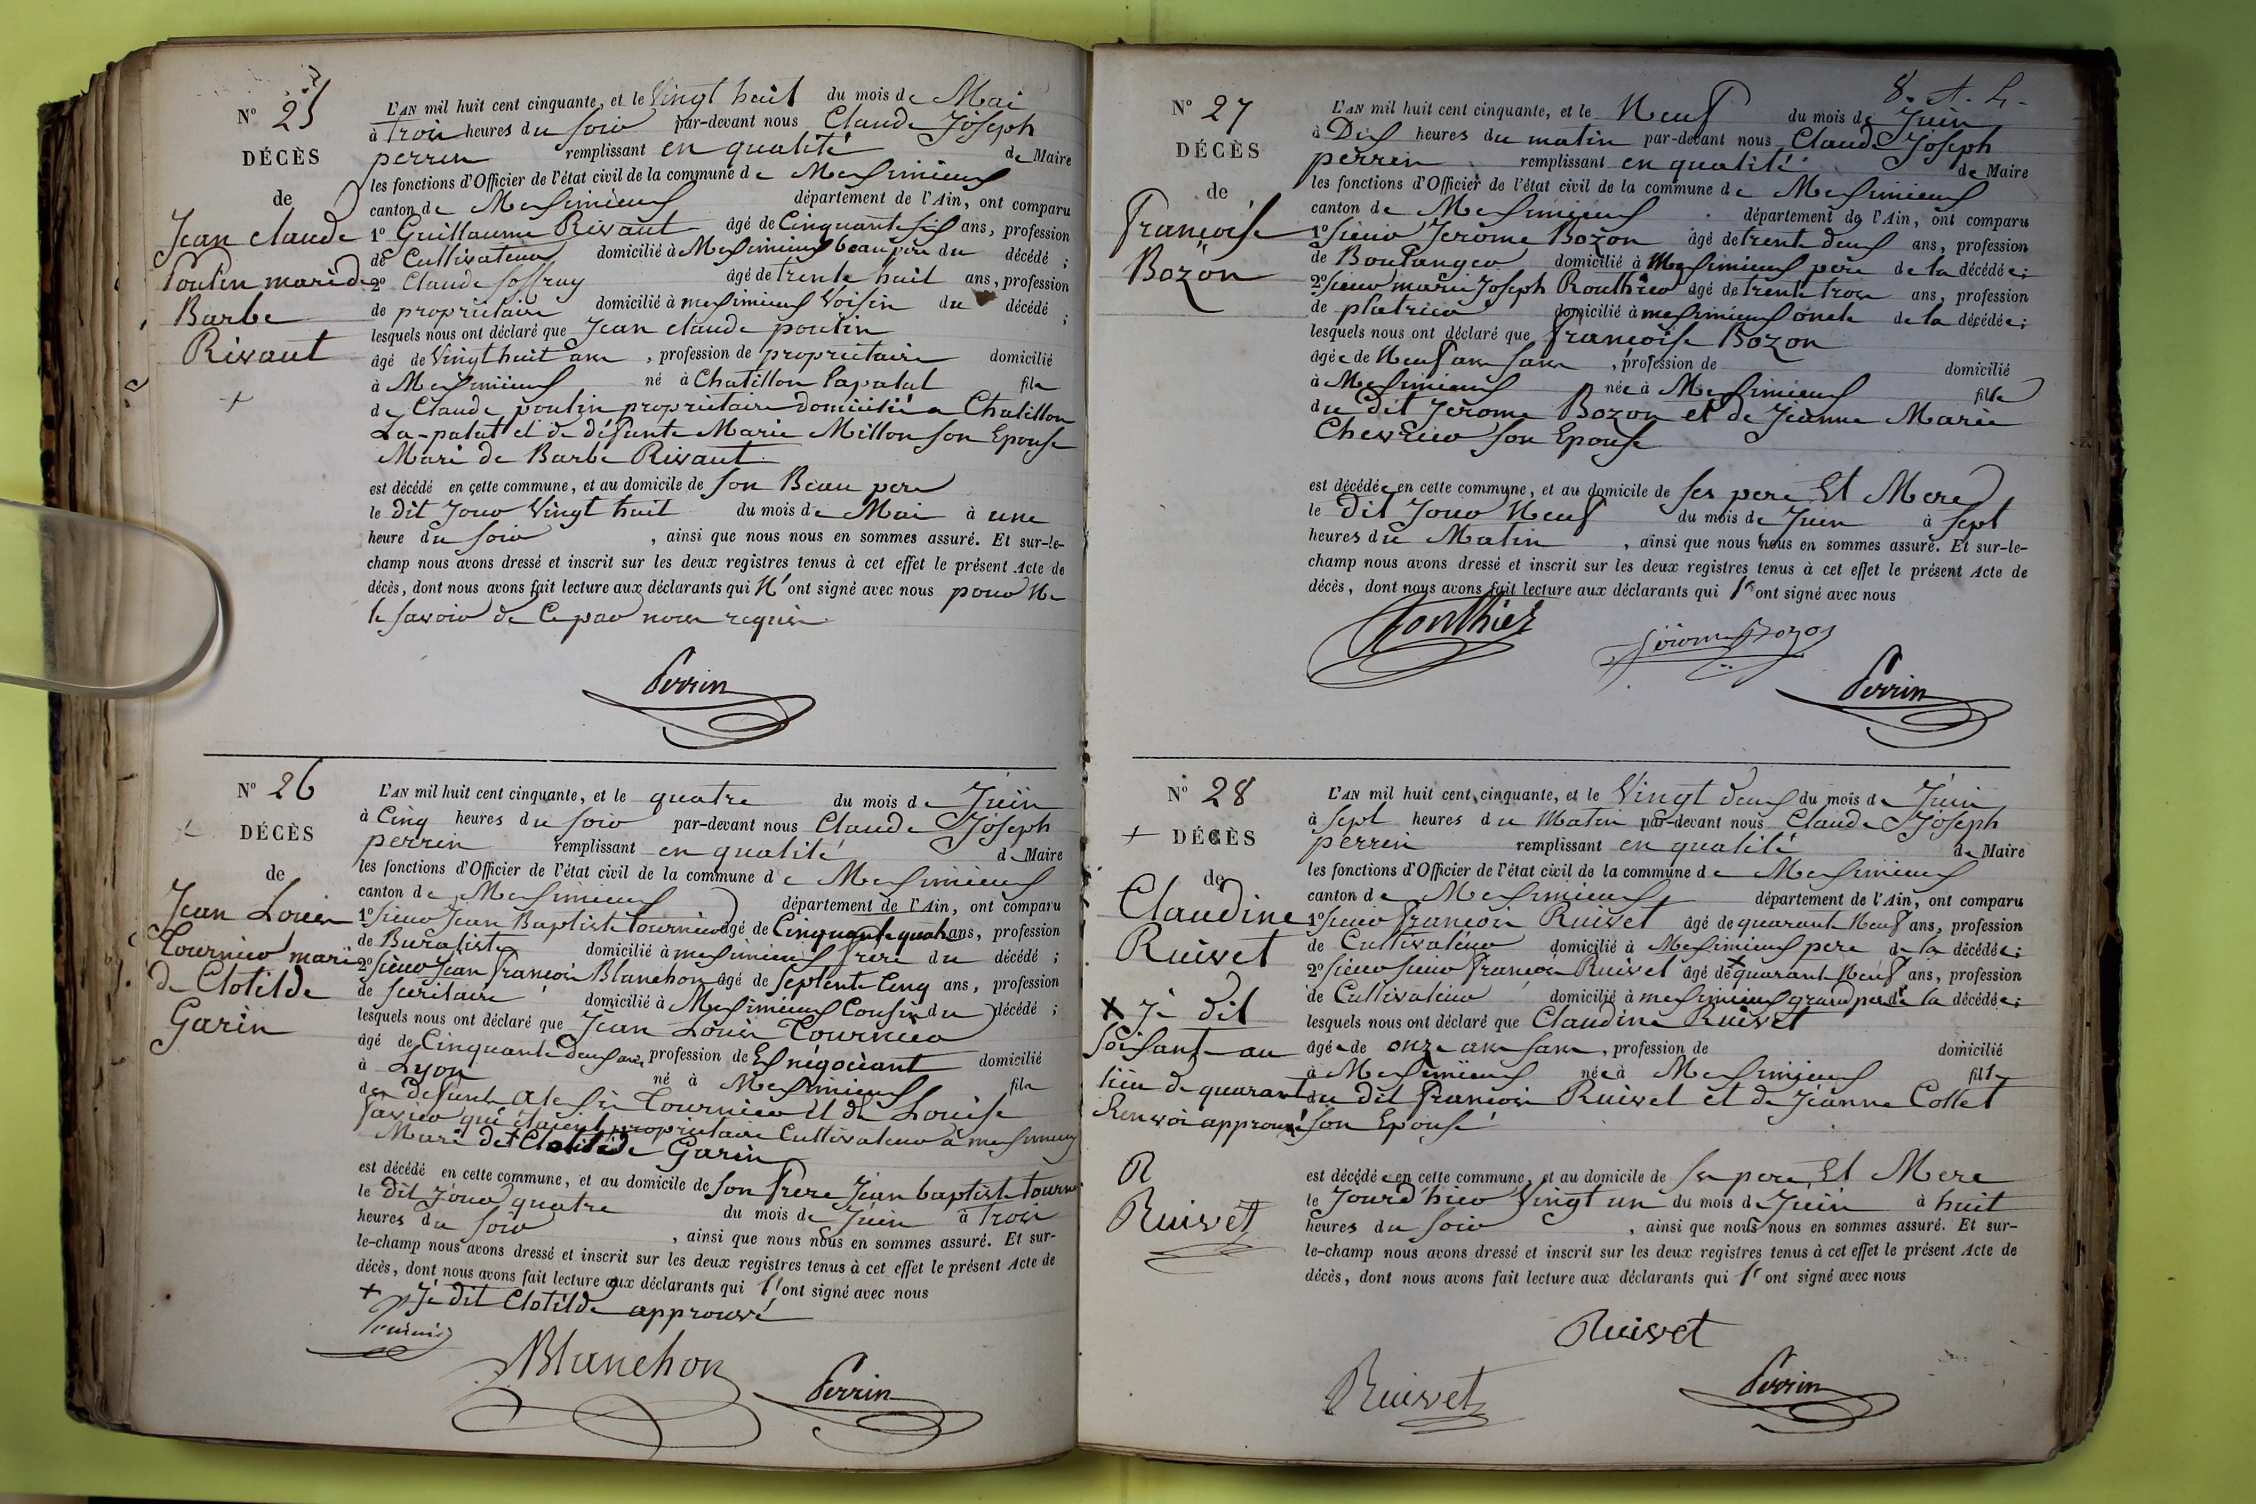 N° 25
DÉCÈS
de
Jean Claude
Poulin mari de
Barbe
Rivaut
L'AN mil huit cent cinquante, et le Vingt huit du mois de Mai
à trois heures du soir par-devant nous Claude Joseph
perrin remplissant en qualité de Maire
les fonctions d'Officier de l'état civil de la commune de Meximieux
canton de Meximieux département de l'Ain, ont comparu
1° Guillaume Rivaut âgé de Cinquante six ans, profession
de Cultivateur domicilié à Meximieux beau pere du décédé ;
2° Claude Joffray âgé de trente huit ans, profession
de propriétaire domicilié à meximieux Voisin du décédé ;
lesquels nous ont déclaré que Jean Claude poulin
âgé de Vingt huit ans, profession de propriétaire domicilié
à Meximieux né à Chatillon lapalud fils
de Claude poulin propriétaire domicilié a Chatillon
La-palud et de défunte Marie Millon son Epouse
Mari de Barbe Rivaut
est décédé en cette commune, et au domicile de son Beau pere
le dit Jour Vingt huit du mois de Mai à une
heure du soir, ainsi que nous nous en sommes assuré. Et sur-le-
champ nous avons dressé et inscrit sur les deux registres tenus à cet effet le présent Acte de
décès, dont nous avons fait lecture aux déclarants qui N'ont signé avec nous pour Ne
le savoir de Ce par nous requis
Perrin
N° 26
DÉCÈS
de
Jean Louis
Tournier mari
de Clotilde
Garin
L'AN mil huit cent cinquante, et le quatre du mois de Juin
à Cinq heures du soir par-devant nous Claude Joseph
perrin remplissant en qualité de Maire
les fonctions d'Officier de l'état civil de la commune de Meximieux
canton de Meximieux département de l'Ain, ont comparu
1° sieur Jean Baptiste Tournier âgé de Cinquante quatre ans, profession
de Buraliste domicilié à meximieux frere du décédé ;
2° sieur Jean François Blanchon âgé de Septente Cinq ans, profession
de domicilié à Meximieux Cousin du décédé ;
lesquels nous ont déclaré que Jean Louis Tournier
âgé de Cinquante deux ans, profession de Ex négociant domicilié
à Lyon né à Meximieux fils
des defunts Alexis Tournier et de Louise
qui étaient propriétaire Cultivateur à meximieux
Mari de + Clotilde Garin
est décédé en cette commune, et au domicile de son frere Jean baptiste tournier
le dit Jour quatre du mois de Juin à trois
heures du soir, ainsi que nous nous en sommes assuré. Et sur-
le-champ nous avons dressé et inscrit sur les deux registres tenus à cet effet le présent Acte de
décès, dont nous avons fait lecture aux déclarants qui l'ont signé avec nous
+ Je dit Clotilde approuvé
Tournier
Blanchon
Perrin
N° 27
DÉCÈS
de
Françoise
Bozon
L'AN mil huit cent cinquante, et le Neuf du mois de Juin
à Dix heures du matin par-devant nous Claude Joseph
perrin remplissant en qualité de Maire
les fonctions d'Officier de l'état civil de la commune de Meximieux
canton de Meximieux département de l'Ain, ont comparu
1° sieur Jerôme Bozon âgé de trente deux ans, profession
de Boulanger domicilié à Meximieux pere de la décédée ;
2° sieur marie Joseph Ronthier âgé de trente trois ans, profession
de platrier domicilié à meximieux oncle de la décédée ;
lesquels nous ont déclaré que françoise Bozon
âgée de Neuf ans sans, profession de domicilié
à Meximieux née à Meximieux fille
du dit Jerôme Bozon et de Jeanne Marie
Chevrier son Epouse
est décédée en cette commune, et au domicile de ses pere Et Mere
le dit Jour Neuf du mois de Juin à sept
heures du Matin, ainsi que nous nous en sommes assuré. Et sur-le-
champ nous avons dressé et inscrit sur les deux registres tenus à cet effet le présent Acte de
décès, dont nous avons fait lecture aux déclarants qui l'ont signé avec nous
Ronthier
Jérome Bozon
Perrin
N° 28
DÉCÈS
de
Claudine
Ruivet
+ Je dit
soixante au
lieu de quarante
Renvoi approuvé
R
Ruivet
L'AN mil huit cent cinquante, et le Vingt deux du mois de Juin
à sept heures du Matin par-devant nous Claude Joseph
perrin remplissant en qualité de Maire
les fonctions d'Officier de l'état civil de la commune de Meximieux
canton de Meximieux département de l'Ain, ont comparu
1° sieur françois Ruivet âgé de quarante Neuf ans, profession
de Cultivateur domicilié à Meximieux pere de la décédée ;
2° sieur sieur François Ruivet âgé de + quarante Neuf ans, profession
de Cultivateur domicilié à meximieux grand pere de la décédée ;
lesquels nous ont déclaré que Claudine Ruivet
âgée de onze ans sans, profession de domicilié
à Meximieux née à Meximieux fille
du dit françois Ruivet et de Jeanne Collet
son Epouse
est décédée en cette commune, et au domicile de ses pere Et Mere
le Jourd'hier Vingt un du mois de Juin à huit
heures du soir, ainsi que nous nous en sommes assuré. Et sur-
le-champ nous avons dressé et inscrit sur les deux registres tenus à cet effet le présent Acte de
décès, dont nous avons fait lecture aux déclarants qui l'ont signé avec nous
Ruivet
Ruivet
Perrin